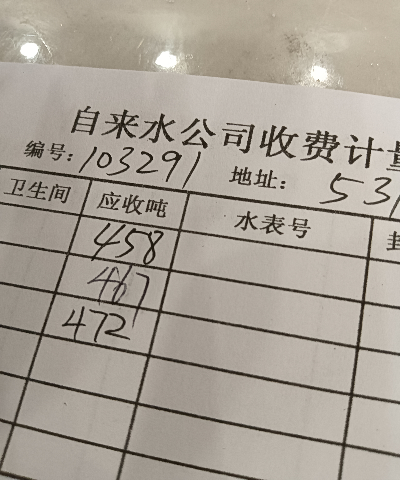 自来水公司收费计量
编号：103291 地址：531
卫生间 应收吨 水表号 封
458
467
472